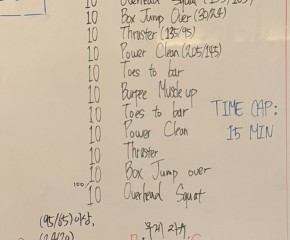 10 Overhead Squat
10 Box Jump Over (30/24)
10 Thruster (135/95)
10 Power Clean (205/145)
10 Toes to bar
10 Burpee Muscle up
10 Toes to bar
10 Power Clean
10 Thruster
10 Box Jump over
100/10 Overhead Squat
TIME CAP:
15 MIN
(95/65) 이상,